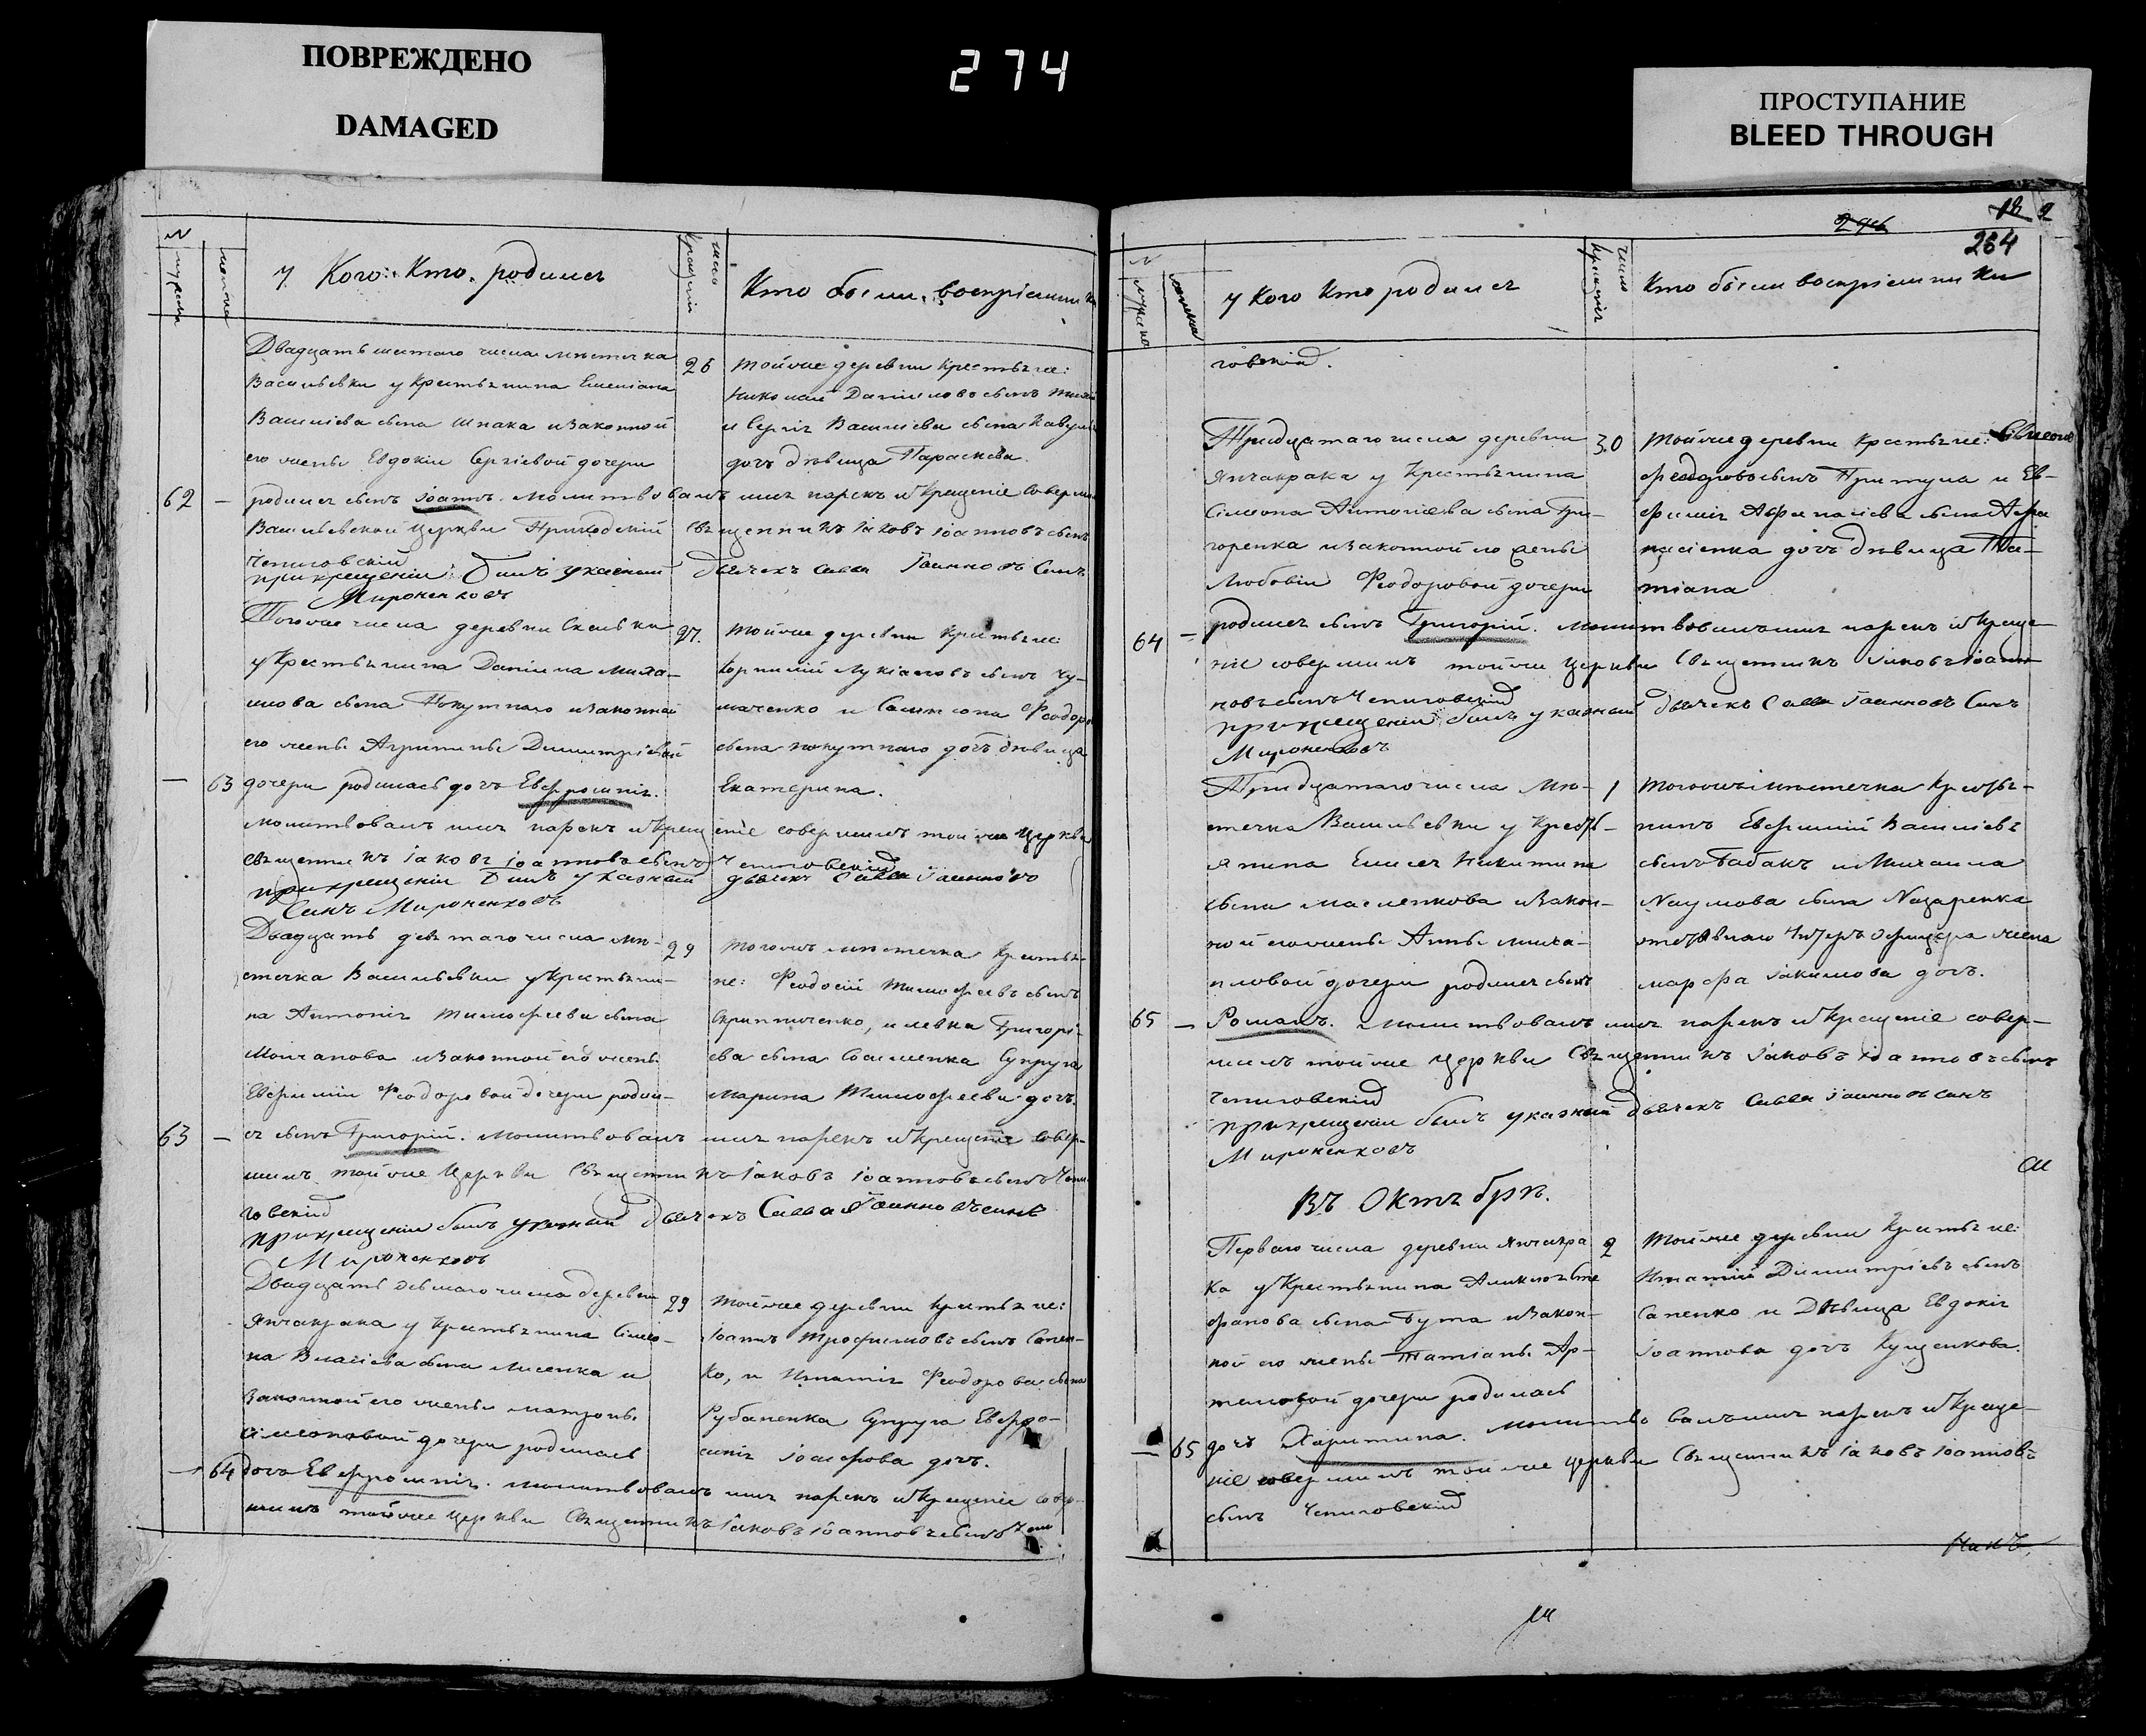 ПОВРЕЖДЕНО
DAMAGED
274
ПРОСТУПАНИЕ
BLEED THROUGH
264
У Кого Кто родился
число крещенія
Кто были воспріемники
Двадцать шестаго числа мѣстечка
Васильевки у Крестьянина Емеліана
Василіева сына Шпака и законной
его жены Евдокіи Сергіевой дочери
62 — родился сынъ Іоаннъ. Молитвовалъ имя нарекъ и Крещеніе
Васильевской Церкви Приходскій Священникъ Іаковъ Іоанновъ сынъ
при крещеніи былъ указный дьячекъ Савва Іоанновъ Сынъ
Мироненковъ
26 Тойже деревни Крестьяне:
Николай Даніиловъ сынъ
и Сергія Василіева сына
дочь дѣвица Параскева.
Тогоже числа деревни Скельки
у Крестьянина Даніила Миха-
илова сына Покутнаго и законной
его жены Агрипины Димитріевой
— 63 дочери родилась дочь Евфросинія.
молитвовалъ имя нарекъ и Крещеніе совершилъ тойже Церкви
Священникъ Іаковъ Іоанновъ сынъ
при крещеніи былъ указный дьячекъ Савва Іоанновъ
Сынъ Мироненковъ
27. Тойже деревни Крестьяне
Корнилій Лукіановъ сынъ Чу-
маченко и Самсона Феодоро
сына покутнаго дочь дѣвица
Екатерина.
Двадцать девятаго числа мѣ-
стечка Васильевки у Крестьяни-
на Антонія Тимофеева сына
Молчанова и законной его жены
Евфиміи Феодоровой дочери родил-
63 — ся сынъ Григорій. Молитвовалъ имя нарекъ и Крещеніе совер-
шилъ тойже Церкви Священникъ Іаковъ Іоанновъ сынъ
говскій
при крещеніи былъ указный дьячекъ Савва Іоанновъ сынъ
Мироненковъ
29 Тогожъ мѣстечка Крестья-
не: Феодосій Тимофеевъ сынъ
Скрипниченко, и Левка Григорі-
ева сына Соленка Супруга
Марина Тимофеева дочь.
Двадцать девятаго числа деревни
Янчакрака у Крестьянина Симео-
на Власіева сына Лисенка и
Законной его жены Матроны
Симеоновой дочери родилась
— 64 дочь Евфросинія. молитвовалъ имя нарекъ и Крещеніе совер-
шилъ тойже Церкви Священникъ Іаковъ Іоанновъ сынъ
29 Тойже деревни Крестьяне:
Іоаннъ Трофимовъ сынъ Сапен-
ко, и Игнатія Феодорова сына
Рубаненка Супруга Евфро-
синія Іосифова дочь.
у Кого Кто родился
число крещенія
Кто были воспріемники
говскій.
Тридцатаго числа деревни
Янчакрака у Крестьянина
Симеона Антоніева сына Гри-
горенка и законной его жены
Любовіи Феодоровой дочери
64 — родился сынъ Григорій. Молитвовалъ имя нарекъ и Креще-
ніе совершилъ тойже Церкви Священникъ Іаковъ Іоан-
новъ сынъ Чепиговскій
при крещеніи былъ указный дьячекъ Савва Іоанновъ Сынъ
Мироненковъ
30 Тойже деревни Крестьяне: Симеонъ
Феодоровъ сынъ Притула и Ев-
фимія Афанасіева сына Афа-
насіенка дочь дѣвица Та-
тіана
Тридцатаго числа Мѣ-
стечка Васильевки у Кресть-
янина Елисея Никитина
сына Масленкова и закон-
ной его жены Анны Миха-
иловой дочери родился сынъ
65 — Романъ. Молитвовалъ имя нарекъ и Крещеніе совер-
шилъ тойже Церкви Священникъ Іаковъ Іоанновъ сынъ
Чепиговскій
при крещеніи былъ указный дьячекъ Савва Іоанновъ сынъ
Мироненковъ
1 Тогожъ мѣстечка Крестья-
нинъ Евфимій Василіевъ
сынъ Бабакъ и Михаила
Наумова сына Назаренка
отставнаго Унтеръ офицера жена
Марфа Іакимова дочь.
Въ Октябрѣ.
Перваго числа деревни Янчакра
ка у Крестьянина
сына Бута и закон-
ной его жены Татіаны Ар-
темовой дочери родилась
— 65 дочь Харитина. молитвовалъ имя нарекъ и Креще-
ніе совершилъ тойже Церкви Священникъ Іаковъ Іоанновъ
сынъ Чепиговскій
2 Тойже деревни Крестьяне:
Игнатій Димитріевъ сынъ
Сапенко и Дѣвица Евдокія
Іоаннова дочь Куценкова.